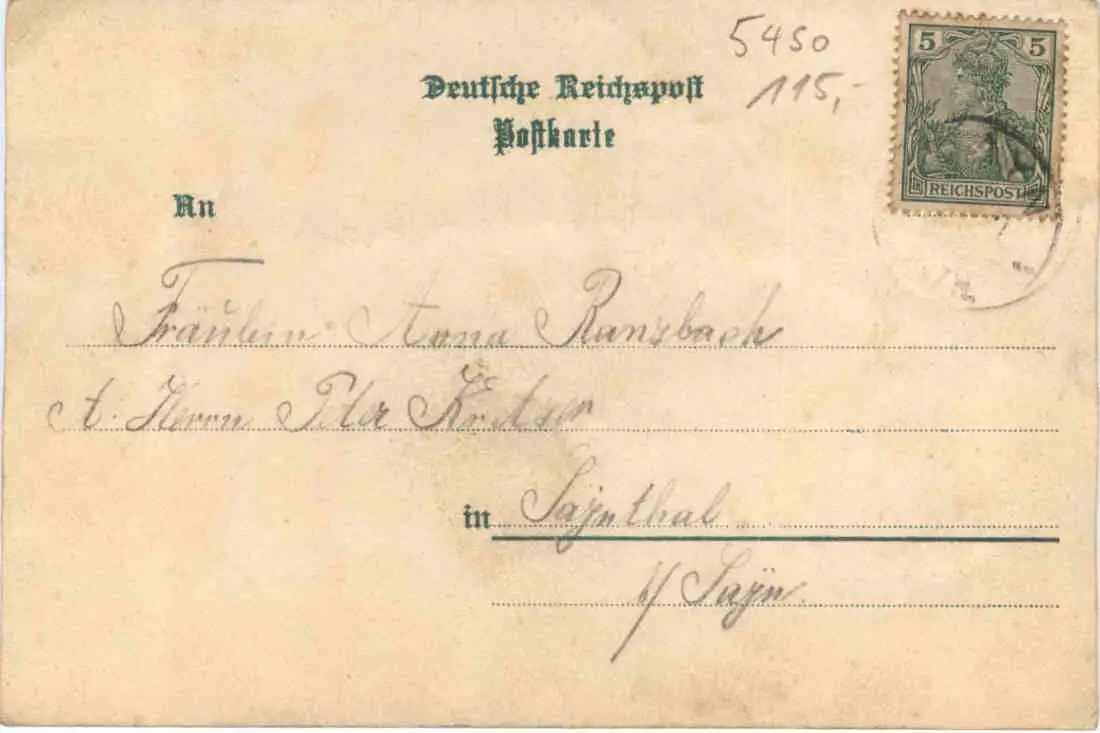 5450
115,-
5 5
REICHSPOST
Deutsche Reichspost
Postkarte
An
Fräulein Anna Ransbach
A. Herrn Peter
in Saynthal
b/ Sayn.